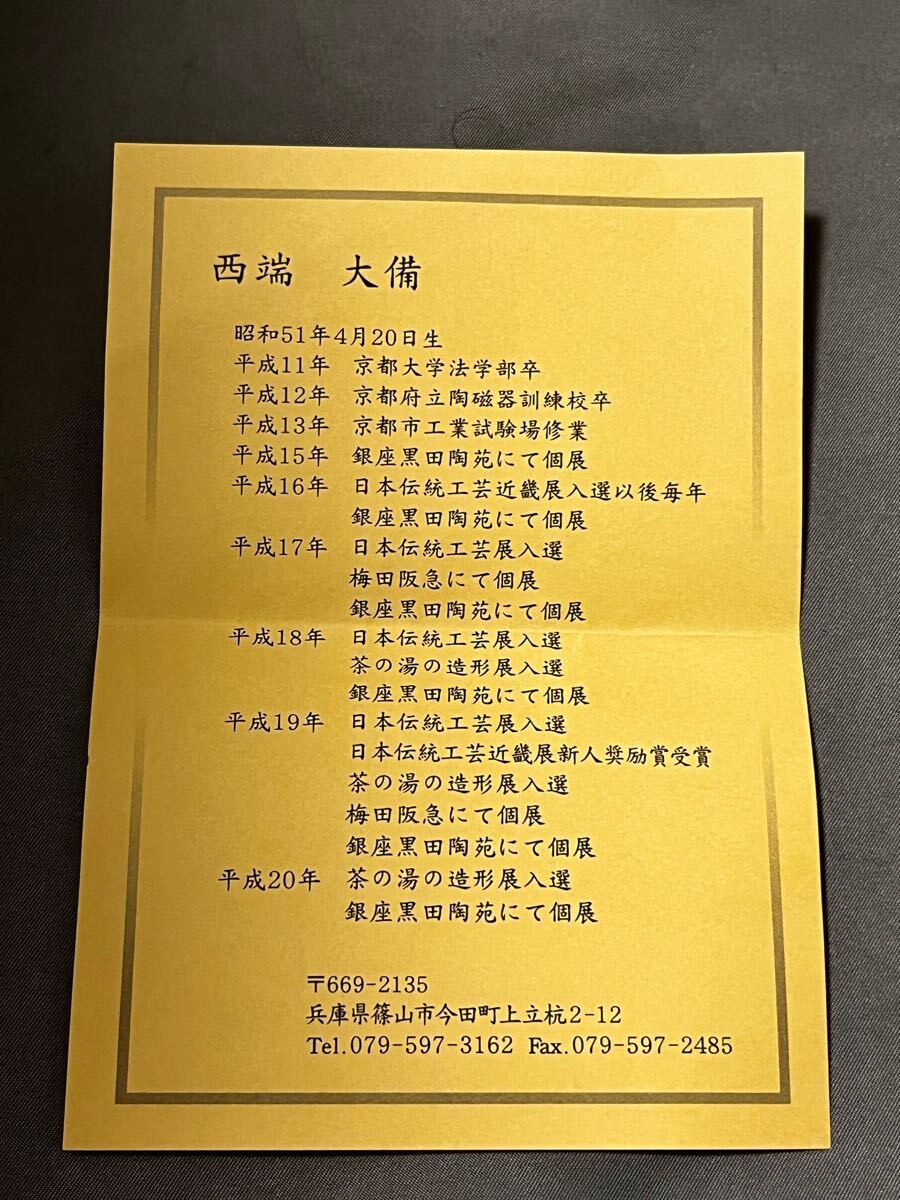 西端　大備
昭和51年4月20日生
平成11年　京都大学法学部卒
平成12年　京都府立陶磁器訓練校卒
平成13年　京都市工業試験場修業
平成15年　銀座黒田陶苑にて個展
平成16年　日本伝統工芸近畿展入選以後毎年
銀座黒田陶苑にて個展
平成17年　日本伝統工芸展入選
梅田阪急にて個展
銀座黒田陶苑にて個展
平成18年　日本伝統工芸展入選
茶の湯の造形展入選
銀座黒田陶苑にて個展
平成19年　日本伝統工芸展入選
日本伝統工芸近畿展新人奨励賞受賞
茶の湯の造形展入選
梅田阪急にて個展
銀座黒田陶苑にて個展
平成20年　茶の湯の造形展入選
銀座黒田陶苑にて個展
〒669-2135
兵庫県篠山市今田町上立杭2-12
Tel.079-597-3162 Fax.079-597-2485